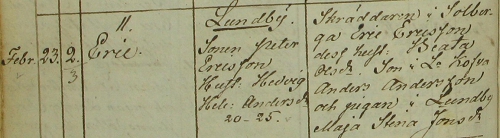 11.
Febr. 23. 2. 3
Eric.
Lundby.
Sonen Peter
Ericsson
Hust: Hedvig
Hel: Andersdr
20-25.
Skräddaren i Solber
ga Eric Ericsson
dess hust: Beata
Olsdr. Son i La Kofva
Anders Andersson
och pigan i Lundby
Maja Stena Jonsdr